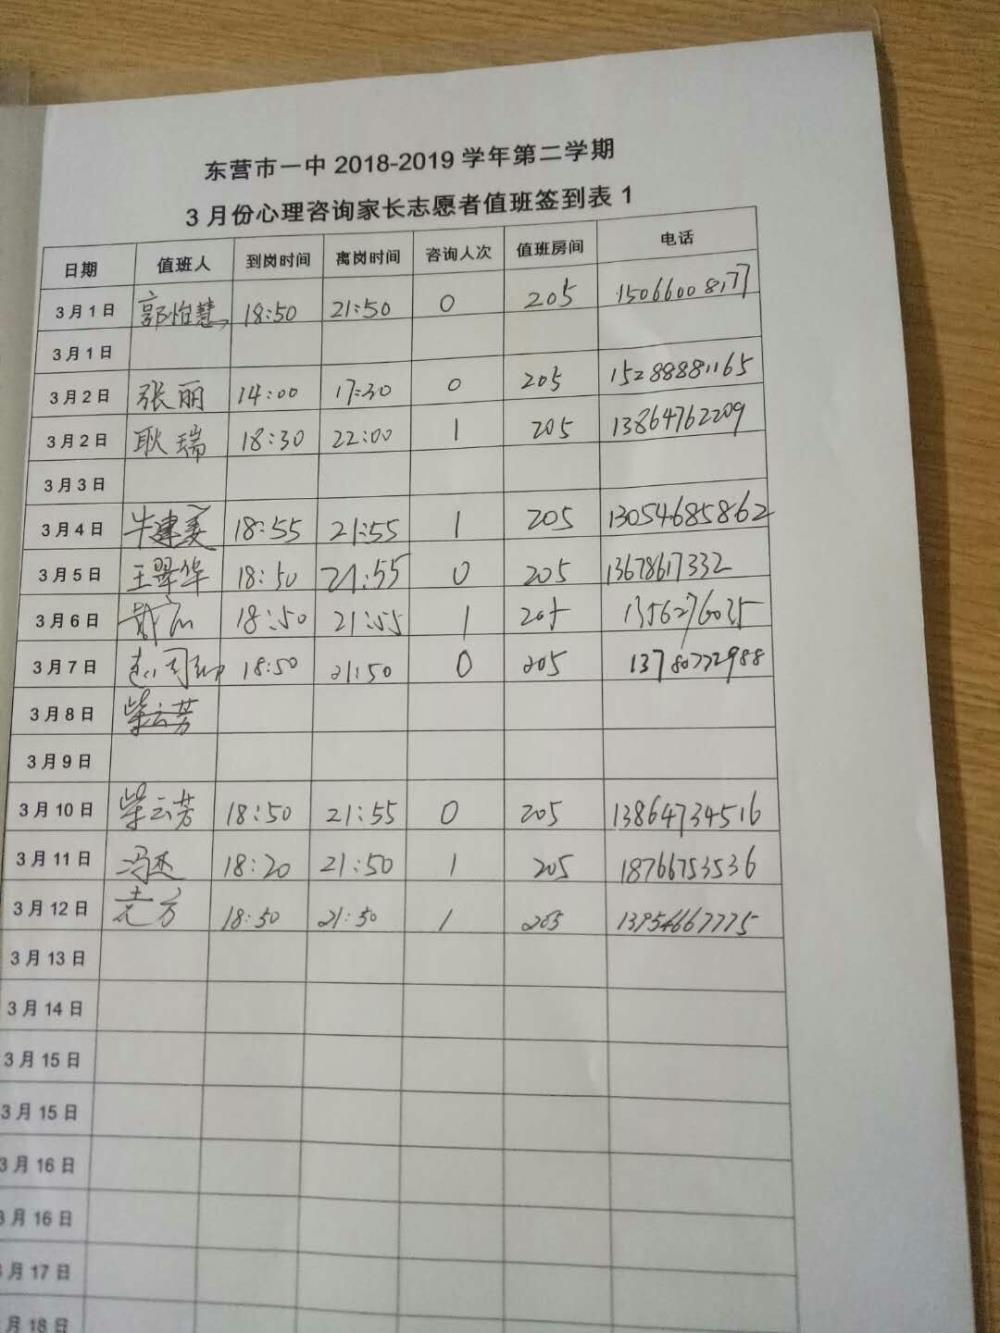 东营市一中 2018-2019 学年第二学期
3 月份心理咨询家长志愿者值班签到表 1
日期 值班人 到岗时间 离岗时间 咨询人次 值班房间 电话
3月1日 郭怡慧 18:50 21:50 0 205 15066008177
3月1日
3月2日 张丽 14:00 17:30 0 205 15288881165
3月2日 耿瑞 18:30 22:00 1 205 13864762209
3月3日
3月4日 牛建美 18:55 21:55 1 205 13054685862
3月5日 王翠华 18:50 21:55 0 205 13678617332
3月6日 18:50 21:55 1 205
3月7日 18:50 21:50 0 205 13780772988
3月8日 柴云芳
3月9日
3月10日 柴云芳 18:50 21:55 0 205 13864734516
3月11日 冯杰 18:20 21:50 1 205 18766753536
3月12日 18:50 21:50 1 205 13954667775
3月13日
3月14日
3月15日
3月15日
3月16日
3月16日
月17日
月18日